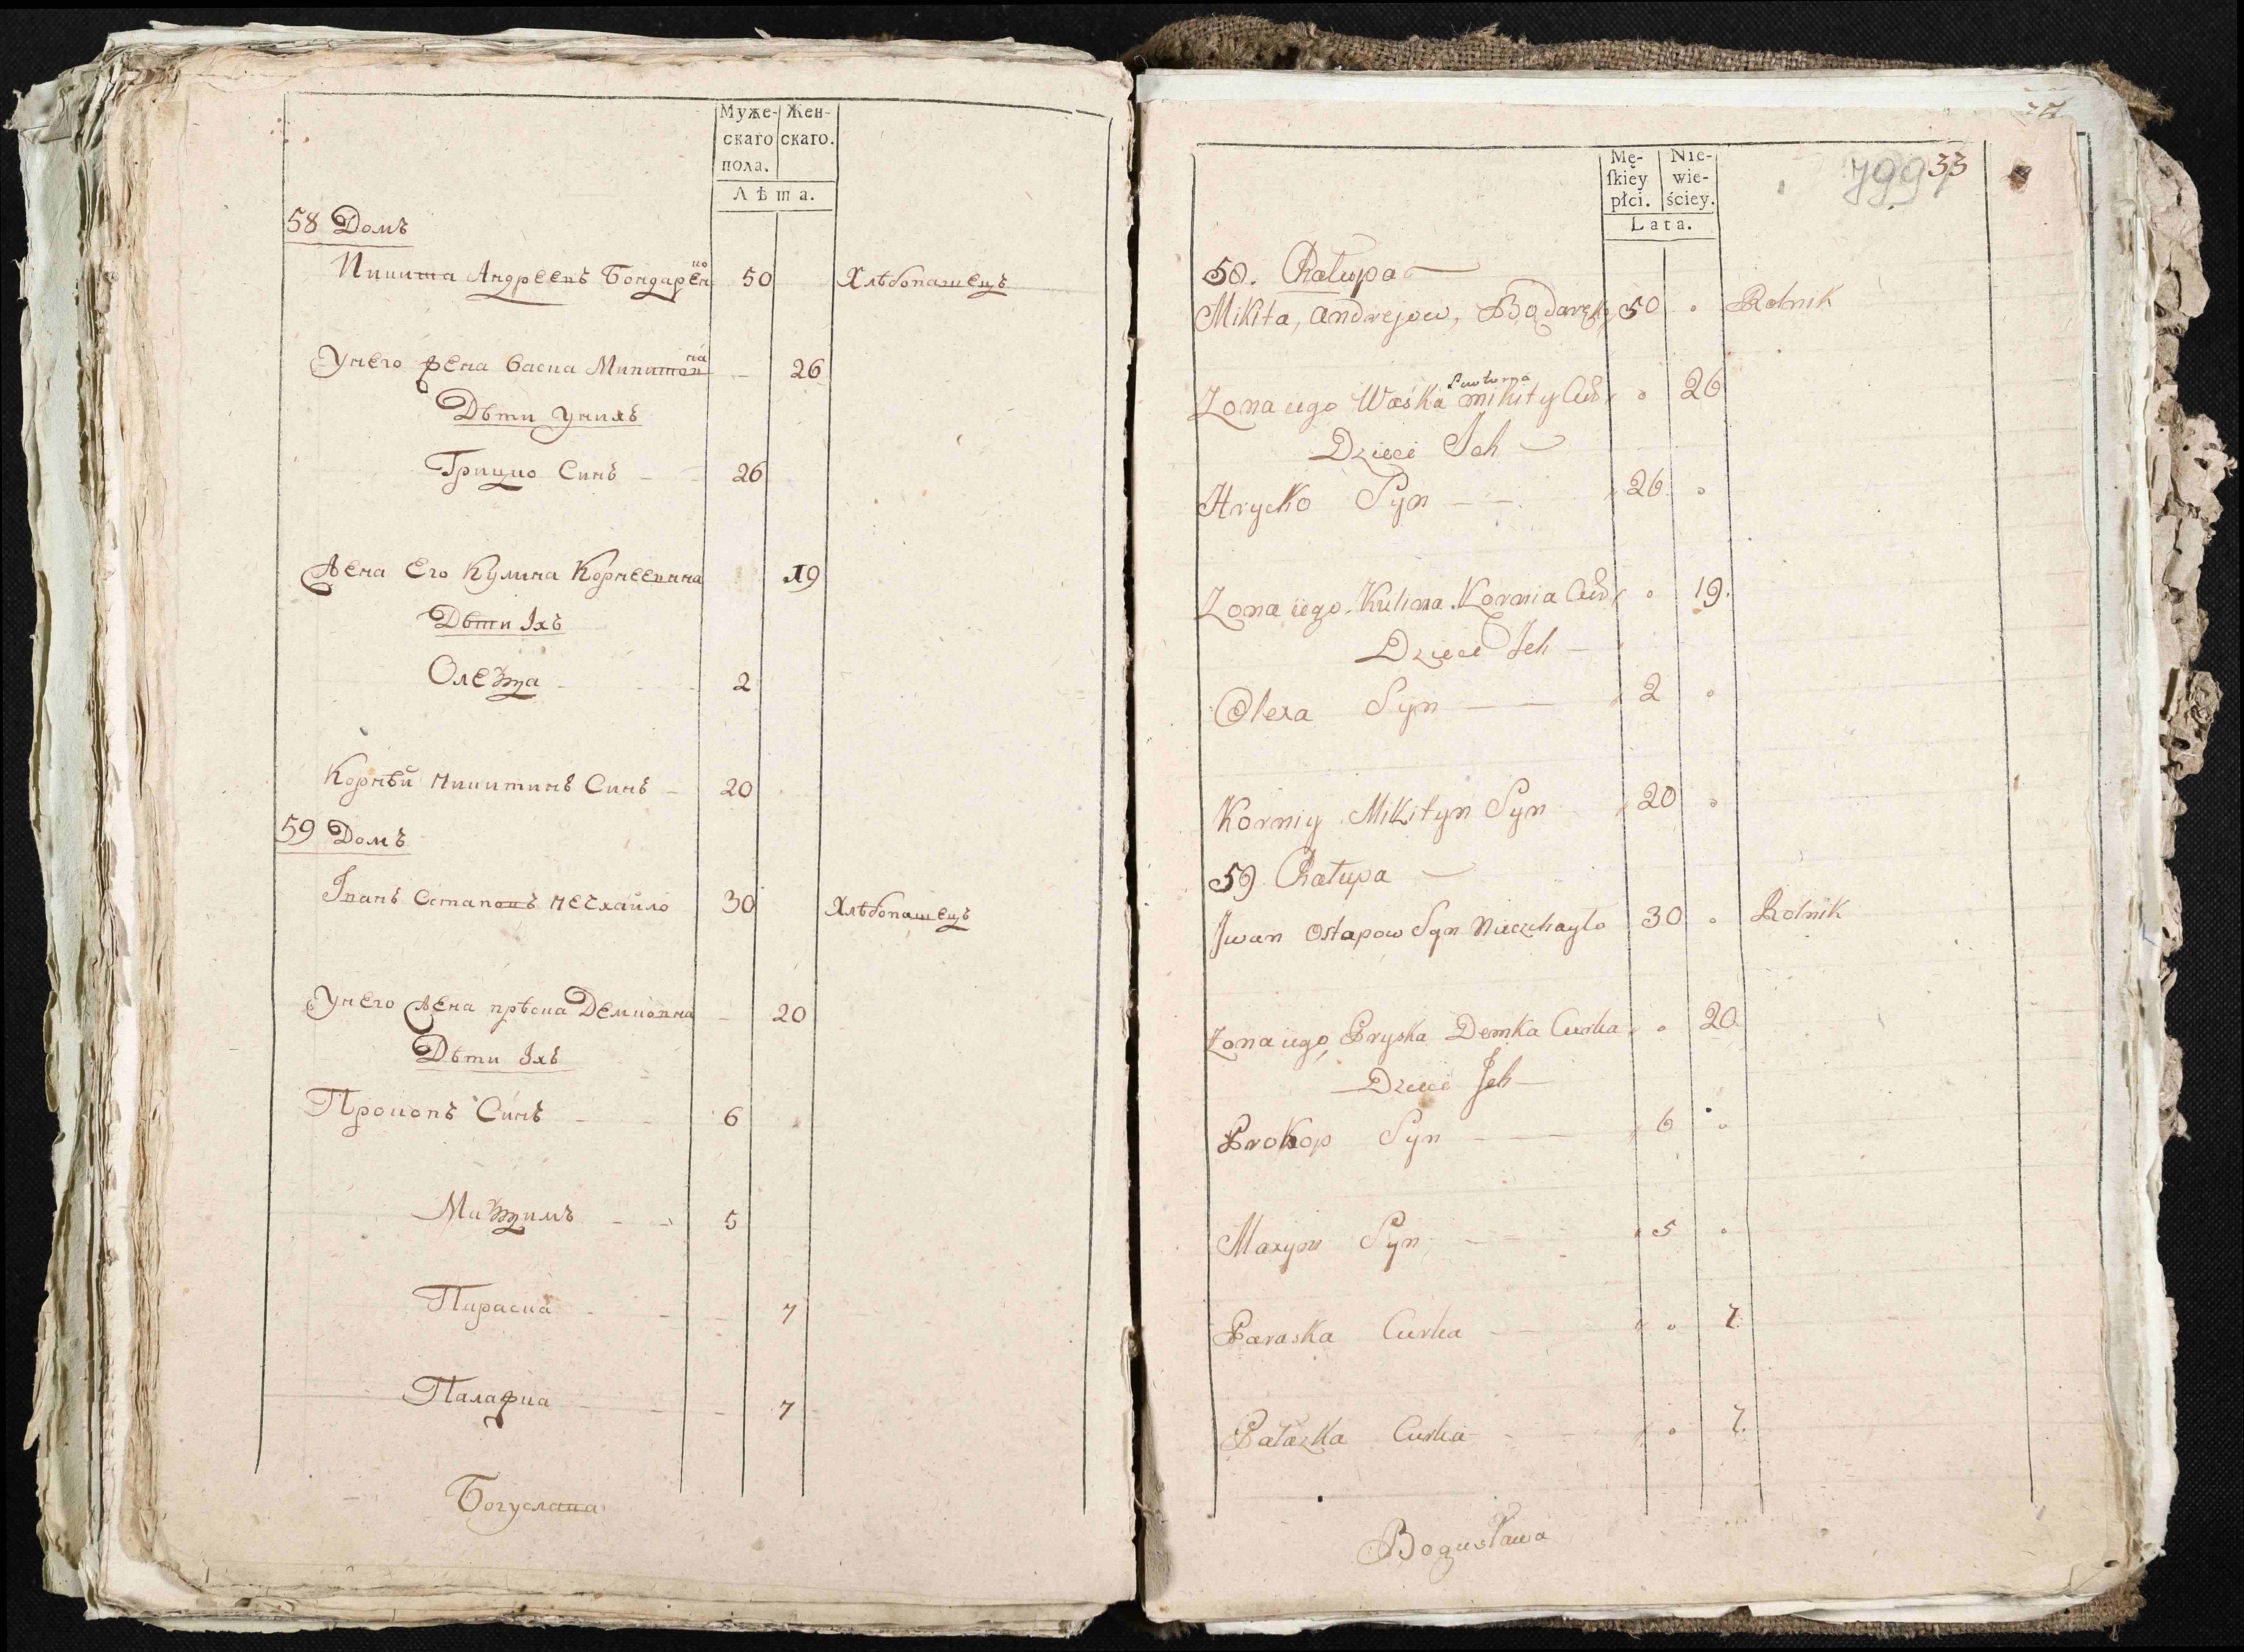 Муже- Жен-
скаго скаго.
пола.
Лѣта.
58 Домъ
Никита Андреевъ Бондаренко 50 Хлѣбопашецъ
Унего жена Васка Микитовна 26
Дѣти унихъ
Грицко Синъ 26
Жена Его Кулина Корнеевнна 19
Дѣти Іхъ
Олеѯа 2
Корнѣй Никитинъ Синъ 20
59 Домъ
Іванъ Остаповъ Нечхайло 30 Хлѣбопашецъ
Унего жена Прѣска Демковна 20
Дѣти Іхъ
Прокопъ Синъ 6
Маѯимъ 5
Параска 7
Палажка 7
Богуслава
Mę- Nie-
ſkiey wie-
płci. ściey.
Lata.
799 33
58. Chałupa
Mikita, Andrejow, Bądaręko 50 Rolnik
Powtorna
Zona iego Waśka Mikity 26
Dzieci Ich
Hrycko Syn 26
Zona iego Kulina Kornia 19.
Dzieci Ich
Olexa Syn 2
Korniy Mikityn Syn 20
59 Chałupa
Iwan Ostapow Syn Nieczhayło 30 Rolnik
Zona iego Pryska Demka Curka 20
Dzieci Ich
Prokop Syn 6
Maxym Syn 5
Paraska Curka 7
Pałazka Curka 7.
Bogusława